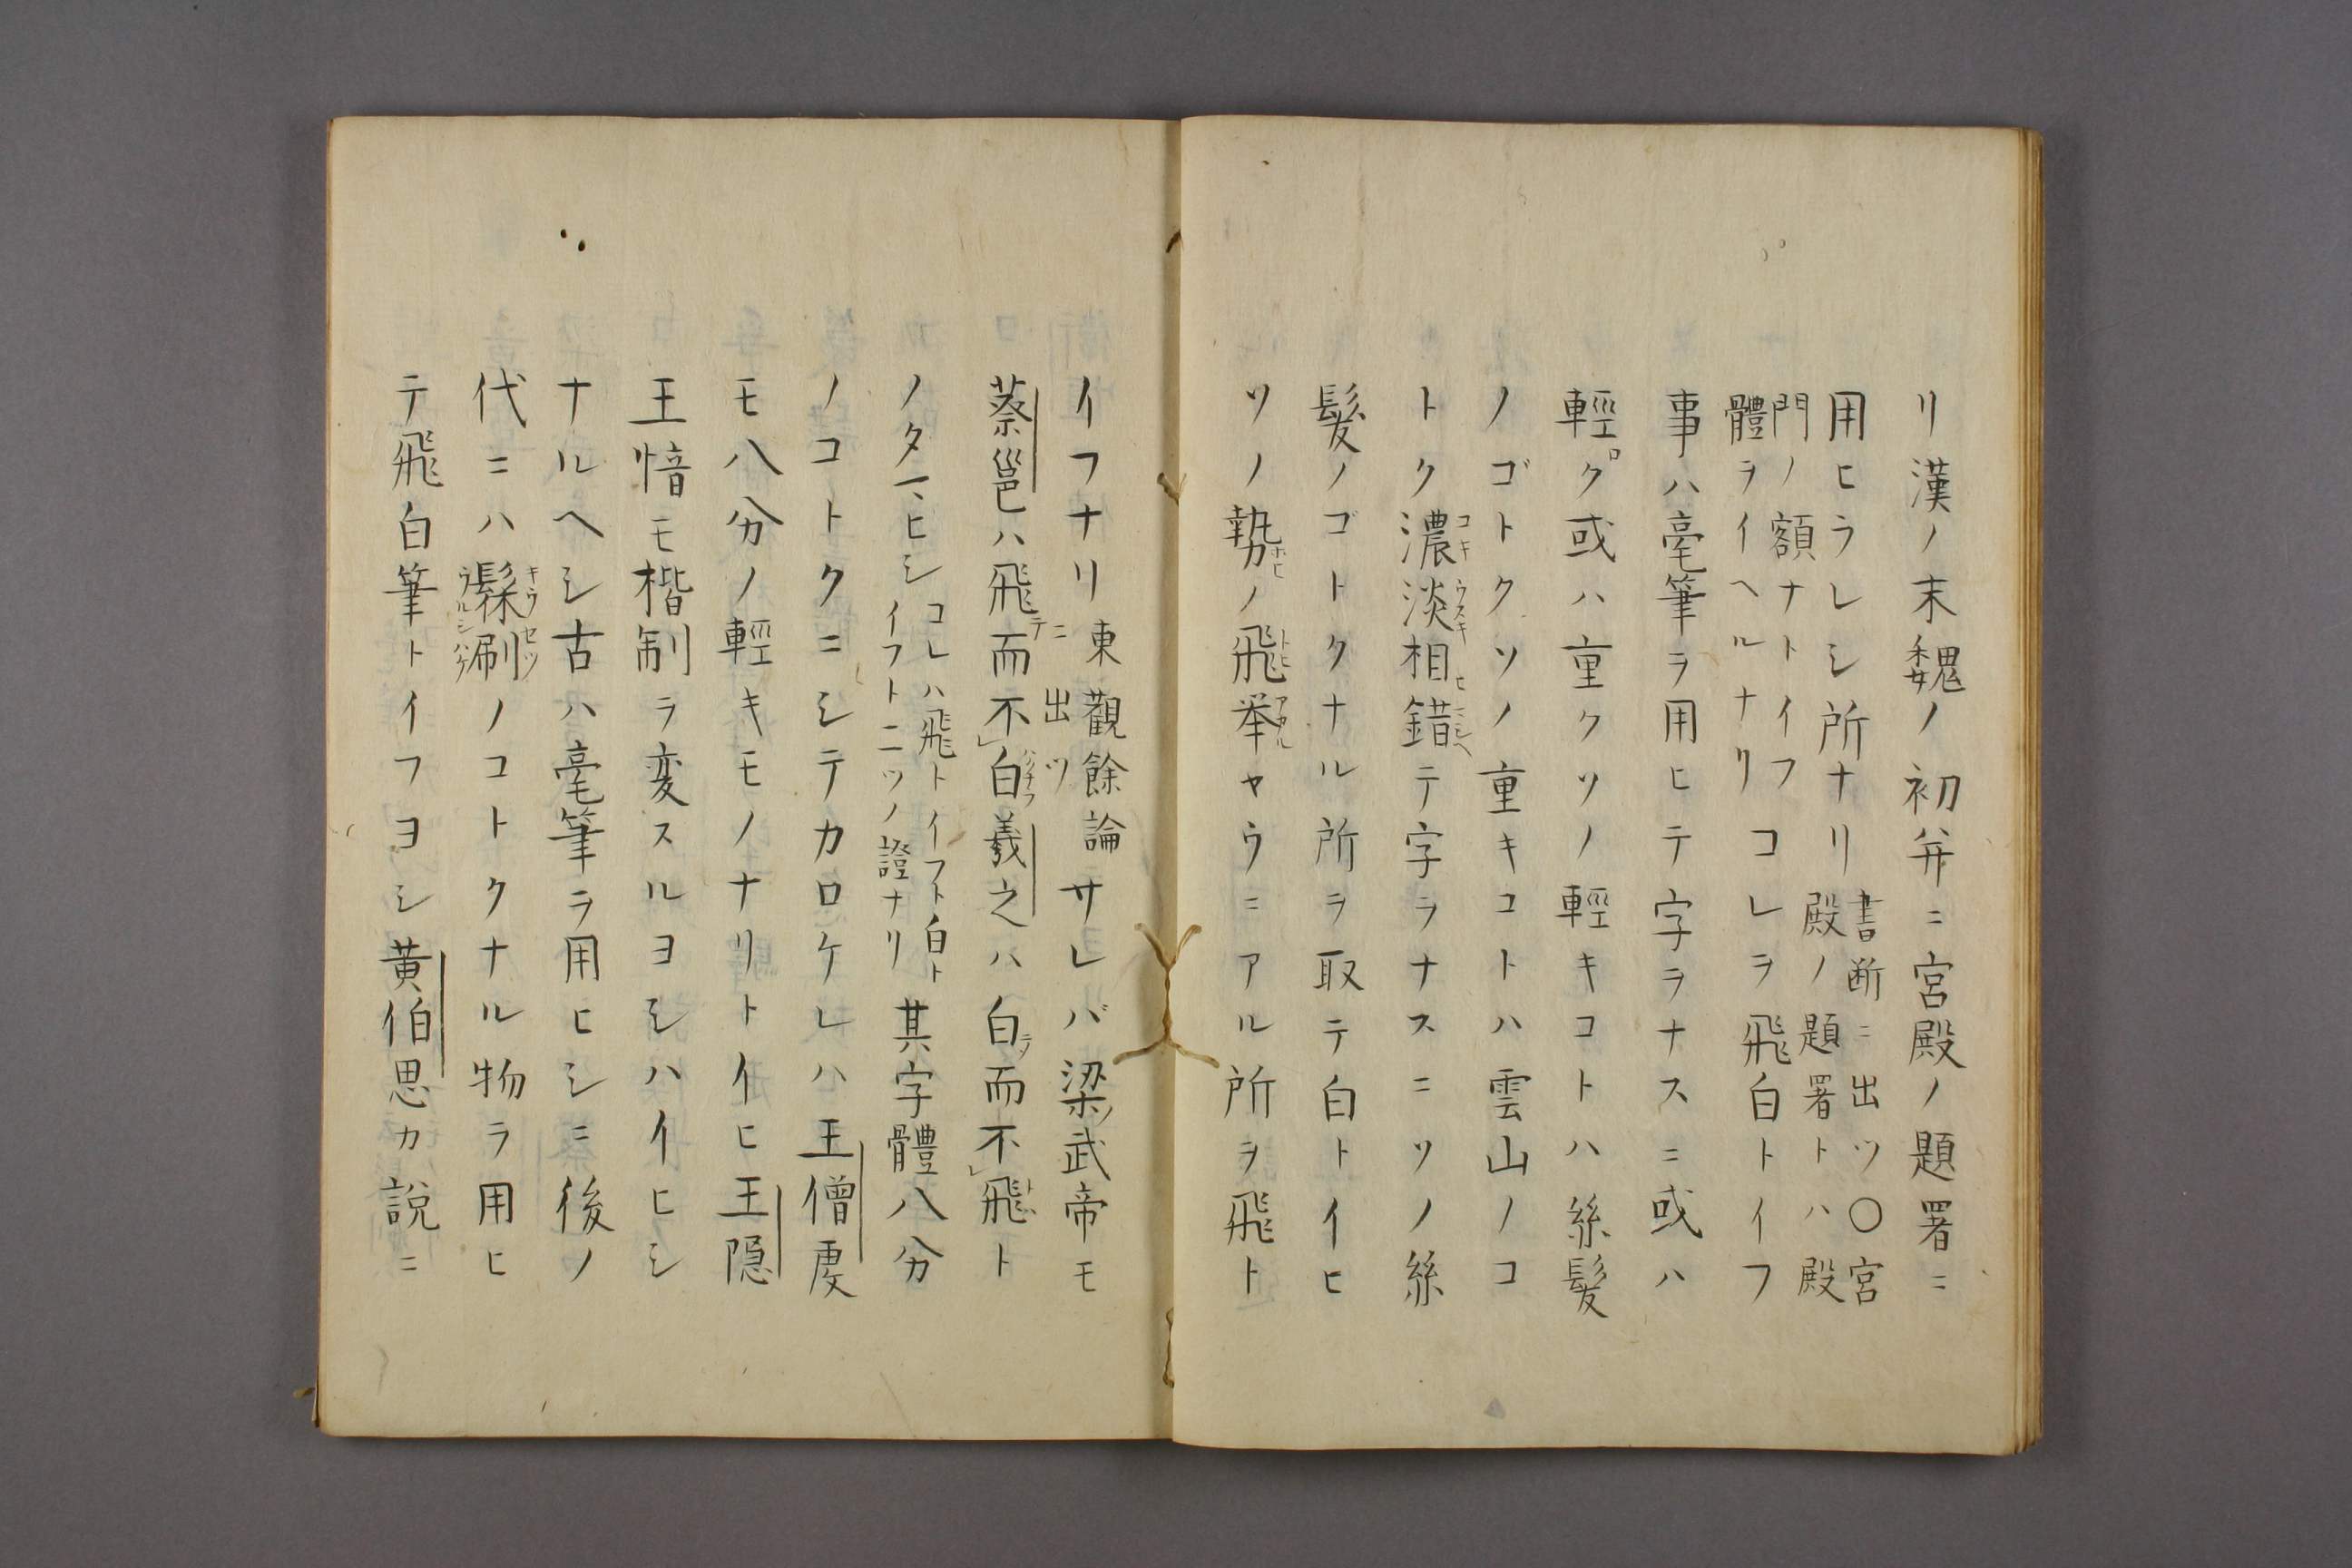 リ漢ノ末魏ノ初并ニ宮殿ノ題署ニ
用ヒラレシ所ナリ書断ニ出ツ〇宮殿ノ題署トハ殿
門ノ額ナトイフ體ヲイヘルナリコレヲ飛白トイフ
事ハ毫筆ヲ用ヒテ字ヲナスニ或ハ
輕ク或ハ重クソノ輕キコトハ絲髮
ノゴトクソノ重キコトハ雲山ノコ
トク濃コキ淡ウスキ相錯テ字ヲナスニソノ絲
髮ノゴトクナル所ヲ取テ白トイヒ
ソノ勢ノ飛舉ヤウニアル所ヲ飛ト
イフナリ東觀餘論ニ出ツサレバ梁ノ武帝モ
蔡邕ハ飛而テ不白羲之ハ白而テ不飛ト
ノタマヒシコレハ飛トイフト白トイフト二ツノ證ナリ其字體八分
ノコトクニシテカロケレハ王僧虔
モ八分ノ輕キモノナリトイヒ王隠
王愔モ楷制ヲ変スルヨシハイヒシ
ナルヘシ古ハ毫筆ヲ用ヒシニ後ノ
代ニハ髹キウ刷セツウルシハケノコトクナル物ヲ用ヒ
テ飛白筆トイフヨシ黄伯思カ説ニ